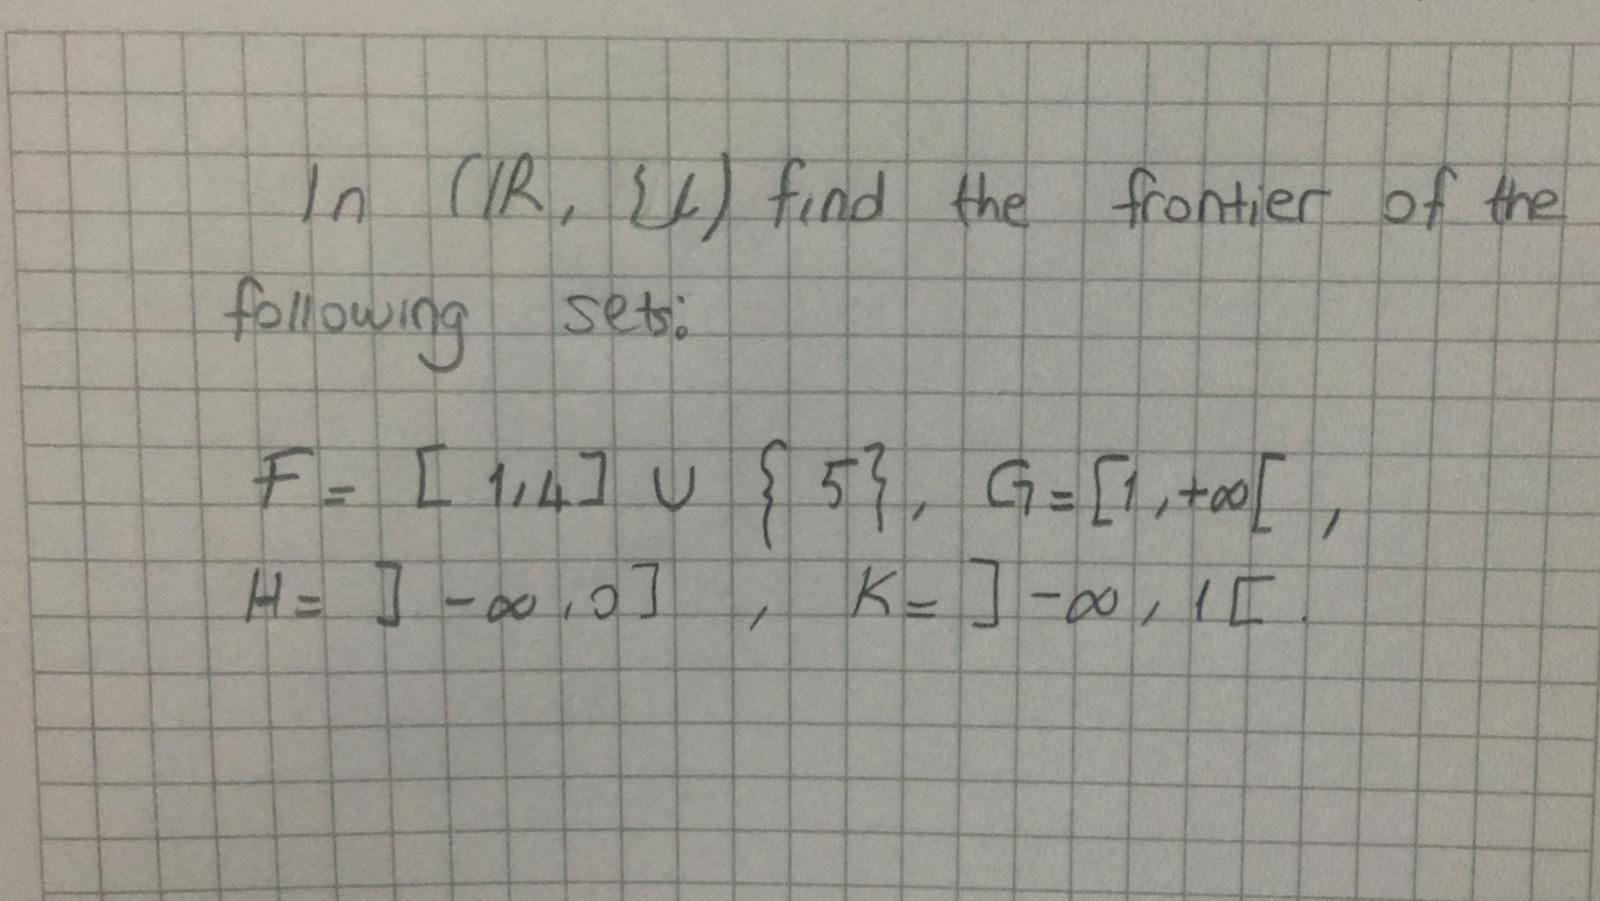 In (ℝ, 𝒰) find the frontier of the
following sets:
F = [ 1,4] ∪ { 5}, G = [1, +∞[ ,
H = ] -∞, 0] , K = ] -∞, 1 [.